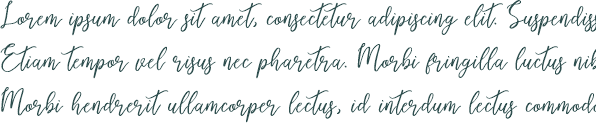 Lorem ipsum dolor sit amet, consectetur adipiscing elit. Suspendiss
Etiam tempor vel risus nec pharetra. Morbi fringilla luctus nib
Morbi hendrerit ullamcorper lectus, id interdum lectus commodo